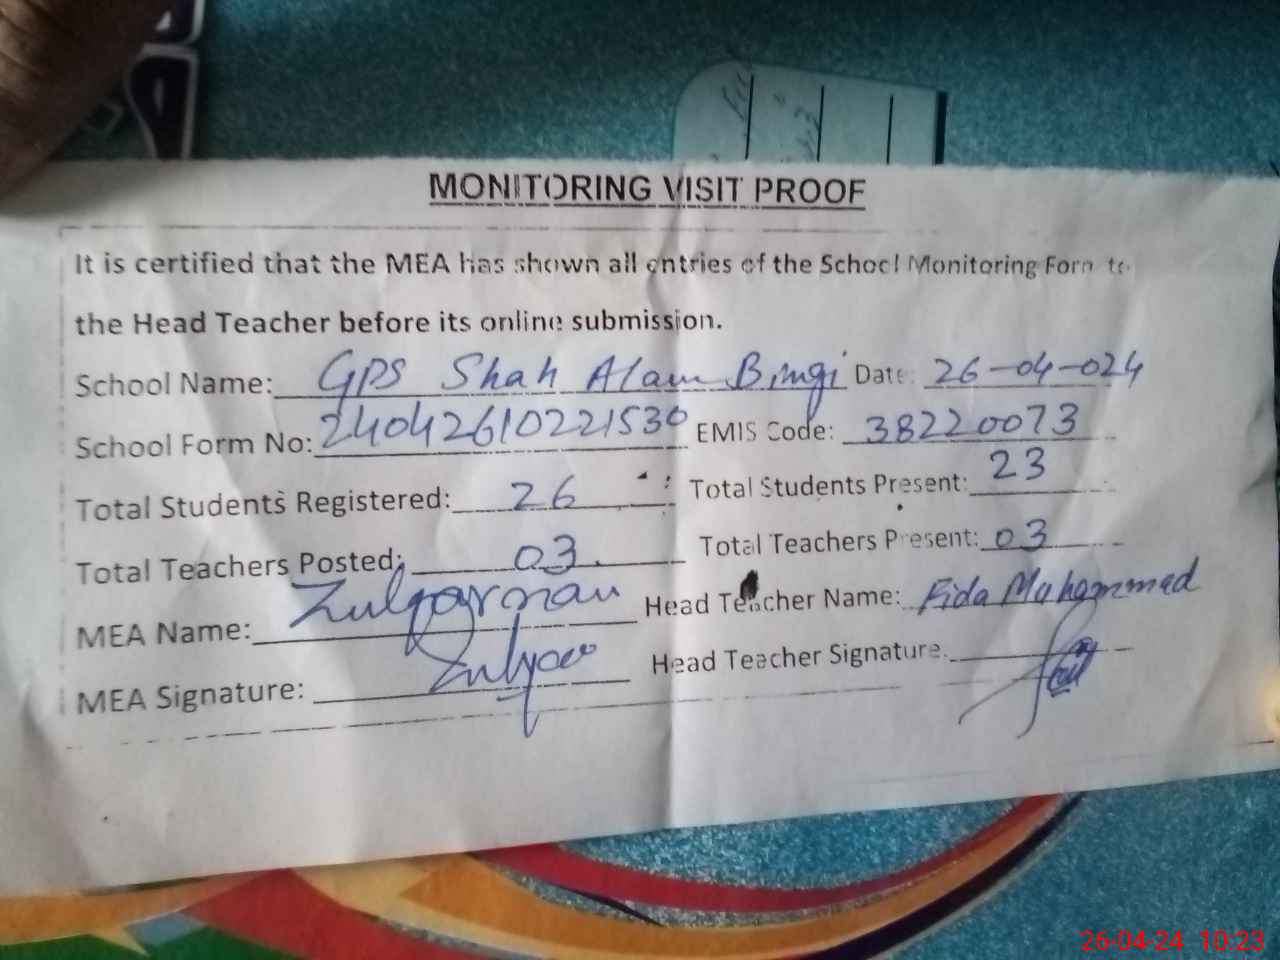 MONITORING VISIT PROOF
It is certified that the MEA has shown all entries of the School Monitoring Form to
the Head Teacher before its online submission.
School Name: GPS Shah Alam Bingi Date: 26-04-024
School Form No: 24042610221530 EMIS Code: 38220073
Total Students Registered: 26 Total Students Present: 23
Total Teachers Posted: 03 Total Teachers Present: 03
MEA Name: Head Teacher Name: Fida Muhammad
MEA Signature: Head Teacher Signature:
26-04-24 10:23